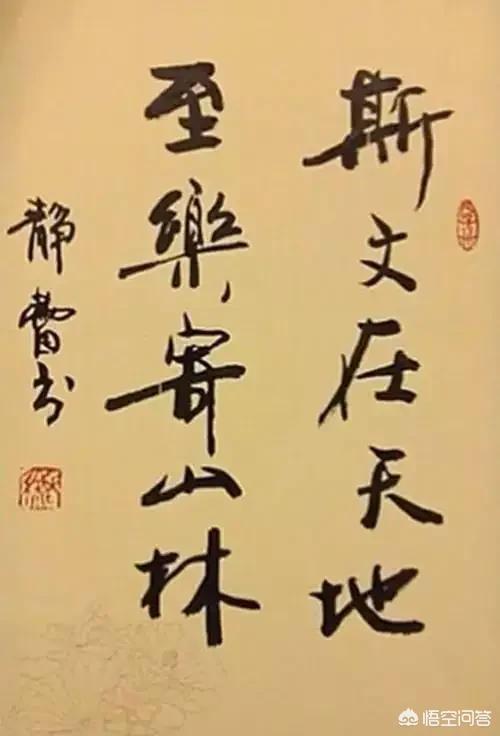 斯文在天地
至樂寄山林
静蕾书
悟空问答